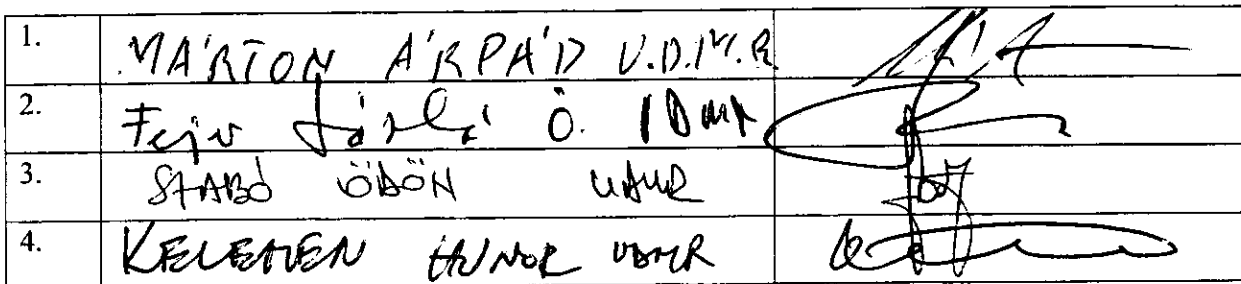 1. MÁRTON ÁRPÁD U.D.M.R
2. László Ö.
3. SZABÓ ÖDÖN UDMR
4. KELEMEN HUNOR UDMR